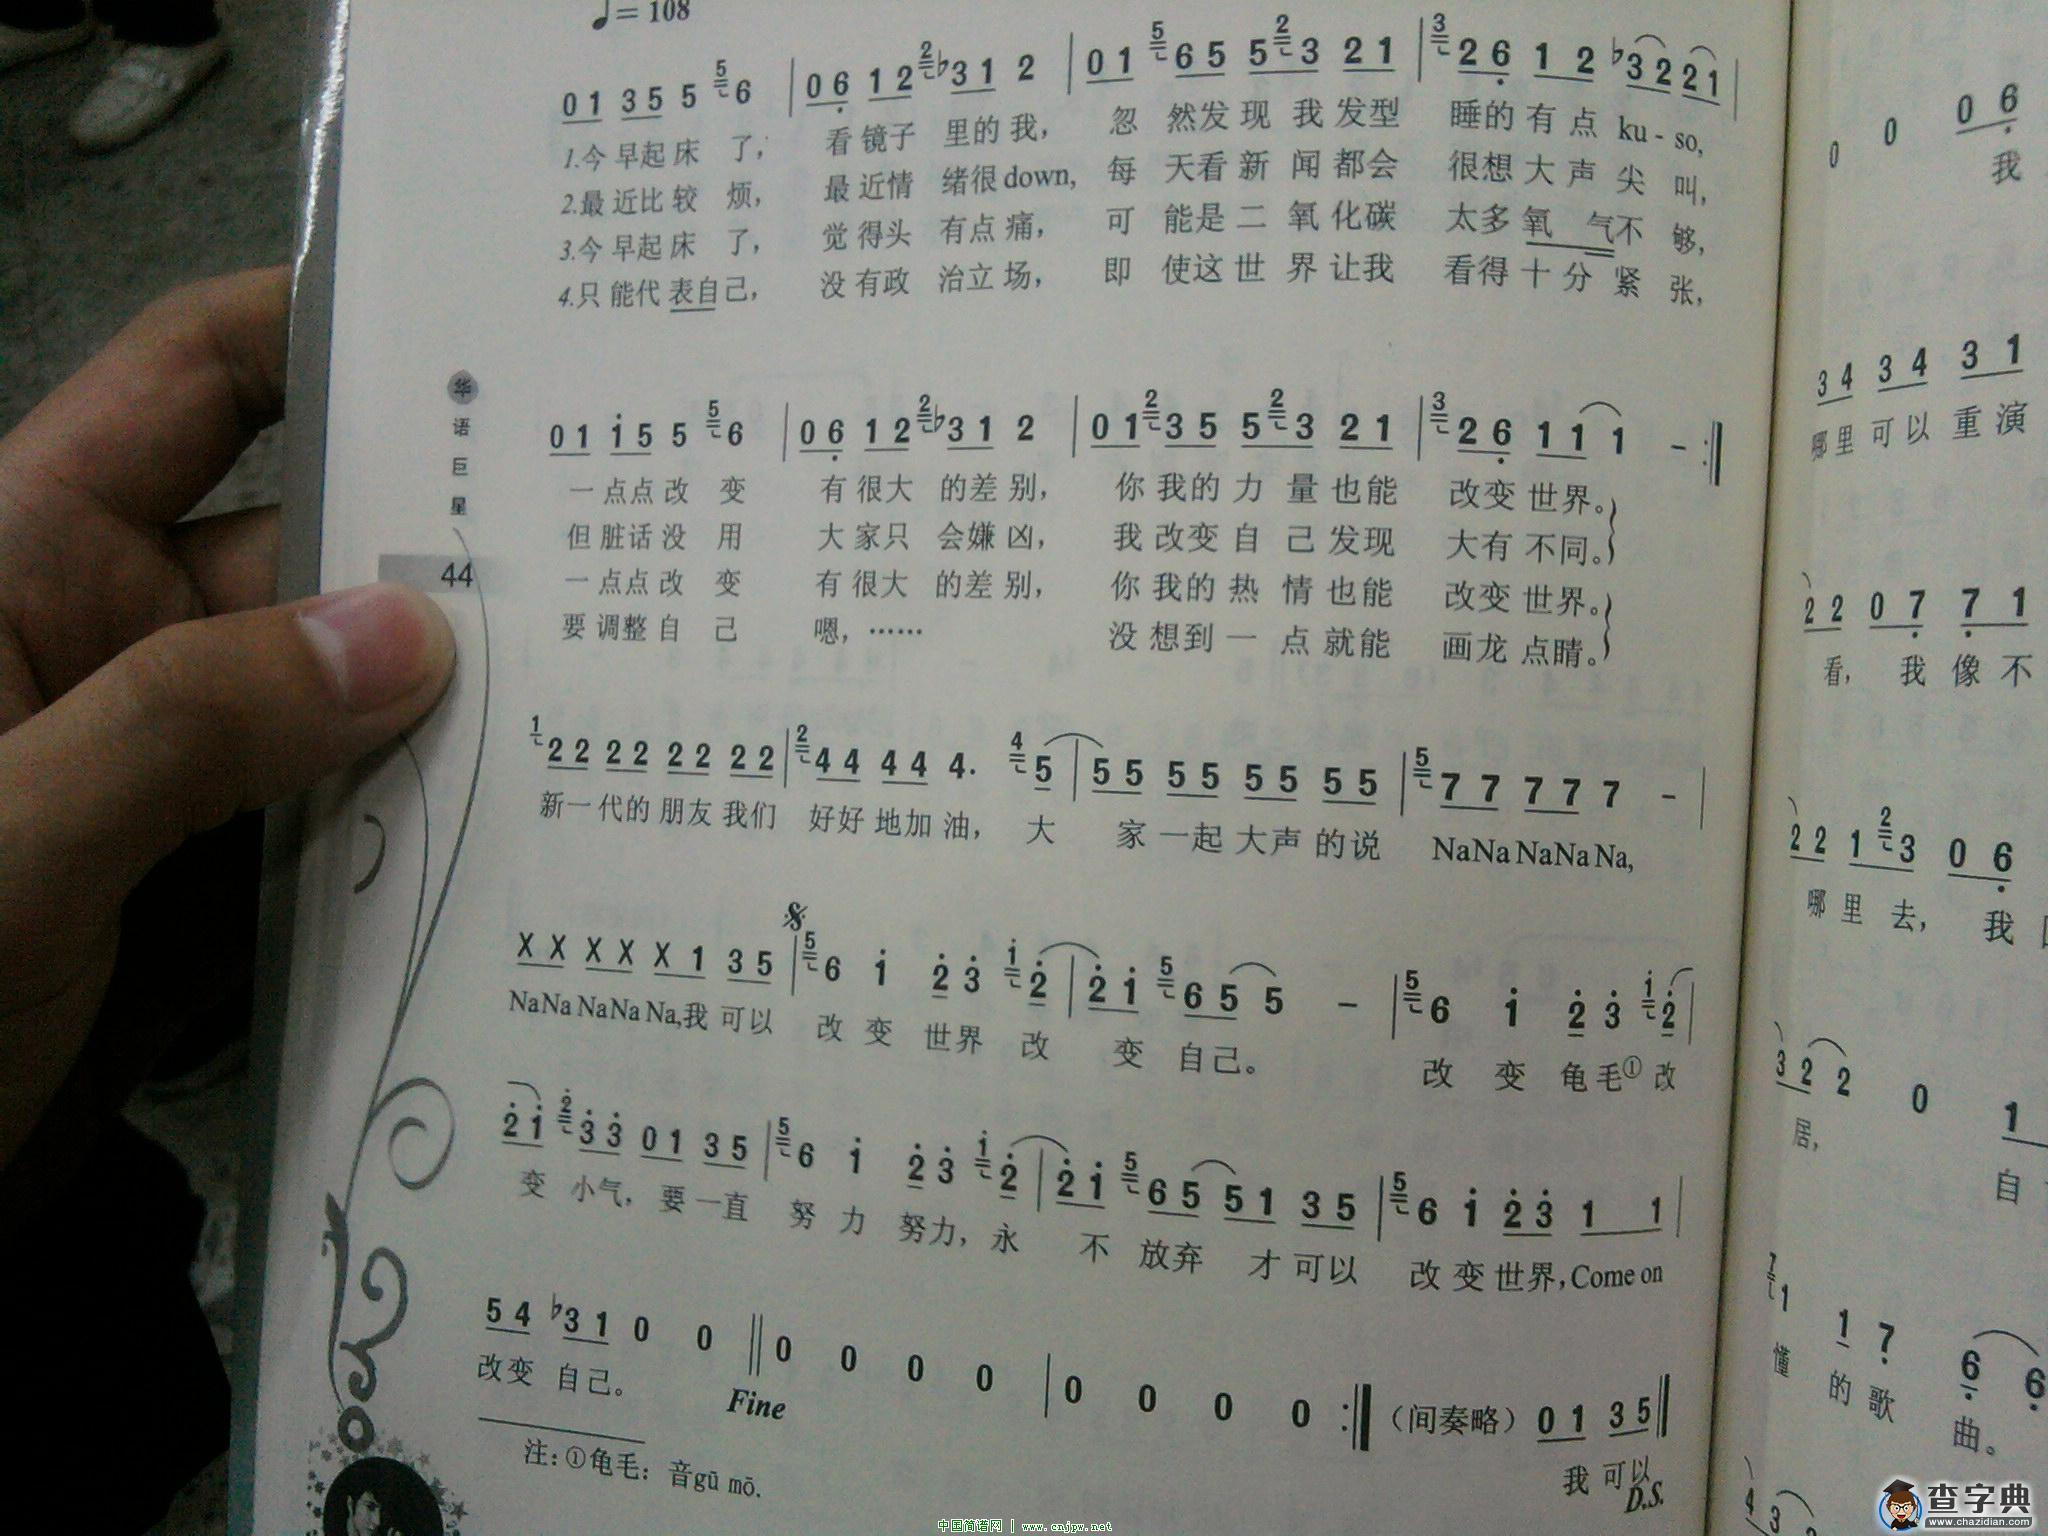 ♩= 108
01 35 5 6
06 12 ♭31 2
01 65 53 21
26 12 ♭32 21
1.今早起床 了, 看镜子 里的我, 忽 然发现我发型 睡的有点 ku-so,
2.最近比较 烦, 最近情 绪很down, 每 天看新闻都会 很想大声尖 叫,
3.今早起床 了, 觉得头 有点痛, 可 能是二氧化碳 太多氧 气不 够,
4.只能代表自己, 没有政 治立场, 即 使这世界让我 看得十分紧 张,
01 i5 5 6 06 12 ♭31 2 01 35 53 21 26 11 1 - :
一点点改 变 有很大 的差别, 你我的力量也能 改变世界。
但脏话没 用 大家只 会嫌凶, 我改变自己发现 大有不同。
一点点改 变 有很大 的差别, 你我的热情也能 改变世界。
要调整自 己 嗯,…… 没想到一点就能 画龙点睛。
华语巨星
44
22 22 22 22 44 44 4. 5 55 55 55 55 77 77 7 -
新一代的朋友我们 好好地加油, 大 家一起大声的说 NaNa NaNa Na,
X X X X X 1 3 5 6 i 2 3 2 2 i 6 5 5 - 6 i 2 3 2
NaNa NaNa Na,我可以 改变世界 改 变 自己。 改 变 龟毛① 改
2 i 3 3 0 1 3 5 6 i 2 3 2 2 i 6 5 5 1 3 5 6 i 2 3 1 1
变 小气, 要一直 努力 努力, 永 不 放弃 才可以 改变世界, Come on
5 4 ♭3 1 0 0 0 0 0 0 0 0 0 0 : (间奏略) 0 1 3 5
改变 自己。 Fine 我 可以
D.S.
注: ①龟毛: 音gū mō.
0 0 0 6
我
3 4 3 4 3 1
哪里可以重演
2 2 0 7 7 1
看, 我像不
2 2 1 3 0 6
哪里去, 我
3 2 2 0 1
居, 自
1 1 7 6 6
懂 的歌 曲。
中国简谱网 | www.cnjpw.net
查字典
www.chazidian.com